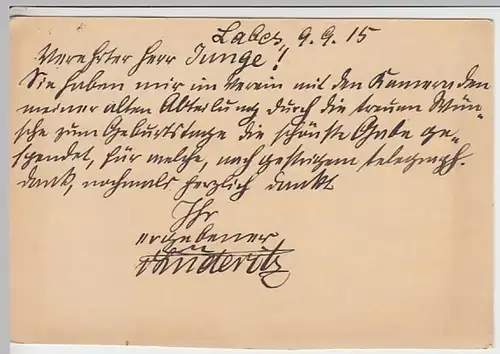 Labes, 9. 9. 15
Verehrter Herr Junge!
Sie haben mir im Verein mit den Kameraden
meiner alten Abteilung durch die treuen Wün-
sche zum Geburtstage die schönste Gabe ge-
spendet, für welche, nach gestrigem telegraph.
Dank, nochmals herzlich dankt
Ihr
ergebener